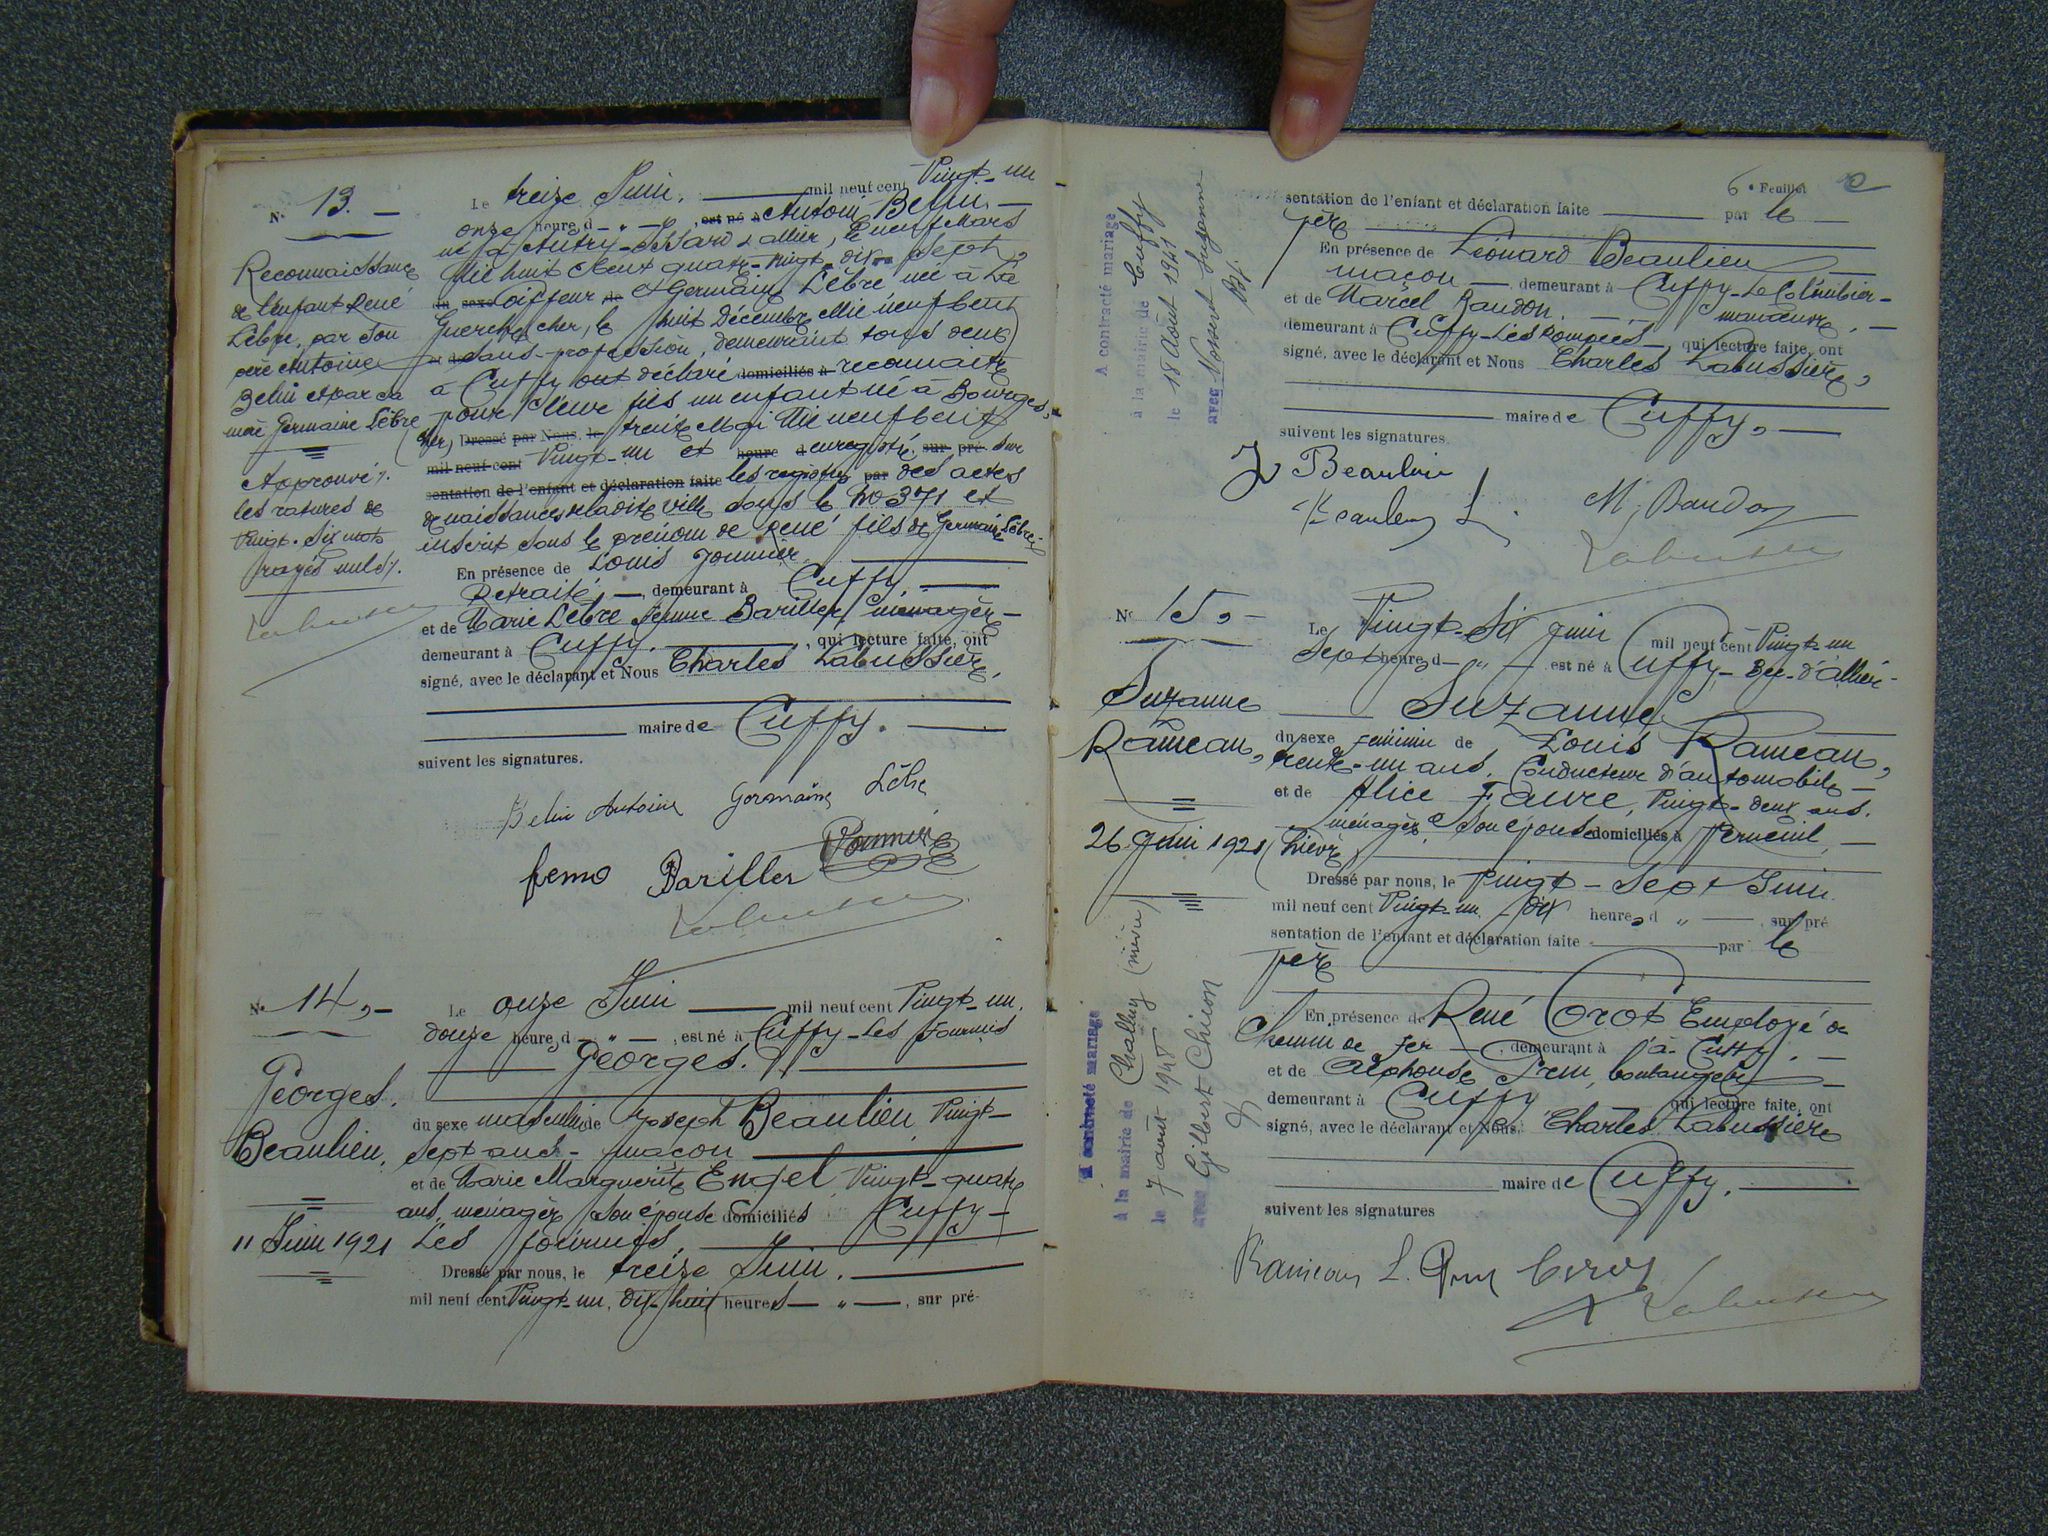 N° 13. —
Reconnaissance
de l'enfant René
Lèbre, par son
père Antoine
Belin et par sa
mère Germaine Lèbre
Approuvé
les ratures de
Vingt-Six mots
rayés nuls
Le treize Juin. mil neuf cent Vingt-un
onze heure d — " —, est né à Antoine Belin —
né à Autry-Issard allier, le neuf Mars
Mil huit Cent quatre-vingt-dix Sept,
du sexe Coiffeur de et Germaine Lèbre née à La
Guerche, cher, le huit Décembre Mil neuf Cent
et de Sans-profession, demeurant tous deux
à Cuffy ont déclaré domiciliés à reconnaître
pour leur fils un enfant né à Bourges,
(Cher) Dressé par Nous, le trente Mai Mil neuf Cent
mil neuf cent Vingt-un et heure d enregistré sur pré- sur
sentation de l'enfant et déclaration faite les registres par des actes
de naissances de ladite ville sous le No 371 et
inscrit sous le prénom de René fils de Germaine Lèbre.
En présence de Louis Jonnier
Retraité —, demeurant à Cuffy
et de Marie Lèbre femme Bariller, ménagère
demeurant à Cuffy. , qui lecture faite, ont
signé, avec le déclarant et Nous Charles Labussière,
maire de Cuffy.
suivent les signatures.
Belin Antoine Germaine Lèbre
feme Bariller Jonnier
N° 14, —
Georges.
Beaulieu.
11 Juin 1921
Le onze Juin mil neuf cent Vingt-un.
douze heures d — " —, est né à Cuffy-Les fournis
Georges.
du sexe masculin de Joseph Beaulieu, Vingt-
Sept ans - maçon
et de Marie Marguerite Engel, Vingt-quatre
ans, ménagère son épouse domiciliés Cuffy —
Les fournis,
Dressé par nous, le treize Juin.
mil neuf cent Vingt-un, dix-huit heures — " —, sur pré-
6e Feuillet
A contracté mariage
à la mairie de Cuffy
le 18 Août 1941
avec Suzanne
sentation de l'enfant et déclaration faite par le
père
En présence de Léonard Beaulieu
maçon —, demeurant à Cuffy-Le Colombier-
et de Marcel Baudon. manœuvre. —
demeurant à Cuffy-Les , qui lecture faite, ont
signé, avec le déclarant et Nous Charles Labussière,
maire de Cuffy, —
suivent les signatures.
J Beaulieu
Beaulieu L. M. Baudon
N° 15, —
Suzanne
Rameau,
26 Juin 1921
A contracté mariage
à la mairie de Challuy (nièvre)
le 7 août 1948
avec Gilbert Chinon
Le Vingt-Six Juin mil neuf cent Vingt-un
Sept heures d — " — est né à Cuffy-Bec-d'allier-
Suzanne
du sexe féminin de Louis Rameau,
trente-un ans, Conducteur d'automobile —
et de Alice Faure, Vingt-deux ans.
ménagère son épouse domiciliés à Verneuil, —
(Nièvre)
Dressé par nous, le Vingt-Sept Juin
mil neuf cent Vingt-un dix heures d " —, sur pré
sentation de l'enfant et déclaration faite par le
père
En présence de René Corot Employé de
Chemin de fer —, demeurant à Cuffy. —
et de Alphonse Prun, boulanger
demeurant à Cuffy qui lecture faite, ont
signé, avec le déclarant et Nous. Charles Labussière
maire de Cuffy.
suivent les signatures
Rameau L. Prun Corot